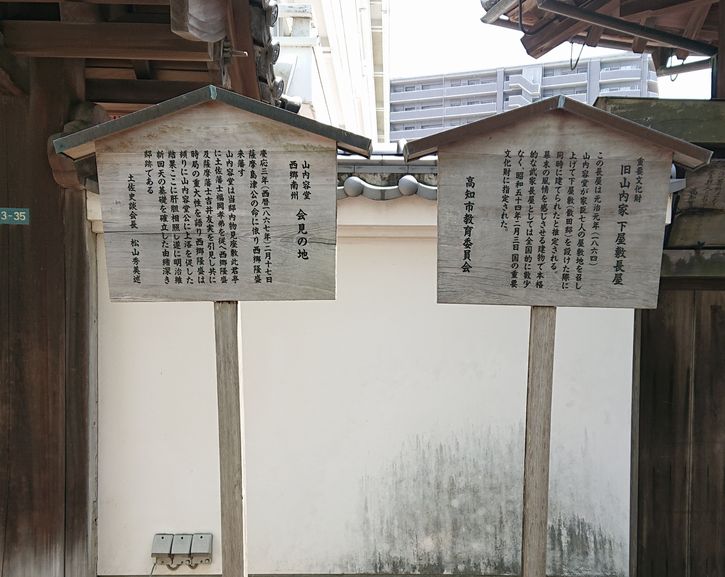 重要文化財
旧山内家 下屋敷長屋
この長屋は元治元年(一八六四)
山内容堂が家臣七人の屋敷地を召し
上げて下屋敷(散田邸)を設けた際に
同時に建てられたと推定される。
幕末の風情を感じさせる建物で本格
的な武家長屋としては全国的に数少
なく、昭和五十四年二月三日国の重要
文化財に指定された。
高知市教育委員会
山内容堂
西郷南州
会見の地
慶応三年(西暦一八六七年)二月十七日
薩摩島津公の命に依り西郷隆盛
来藩す
山内容堂は当邸内物見座敷此君亭
に土佐藩士福岡孝弟を従へ西郷隆盛
及薩摩藩士吉井友実を引見し共に
時局の重大性を語り西郷隆盛は
頻りに山内容堂公に上洛を促した
結果ここに肝胆相照し遂に明治維
新回天の基礎を確立した由緒深き
邸跡である
土佐史談会長 松山秀美撰
3-35